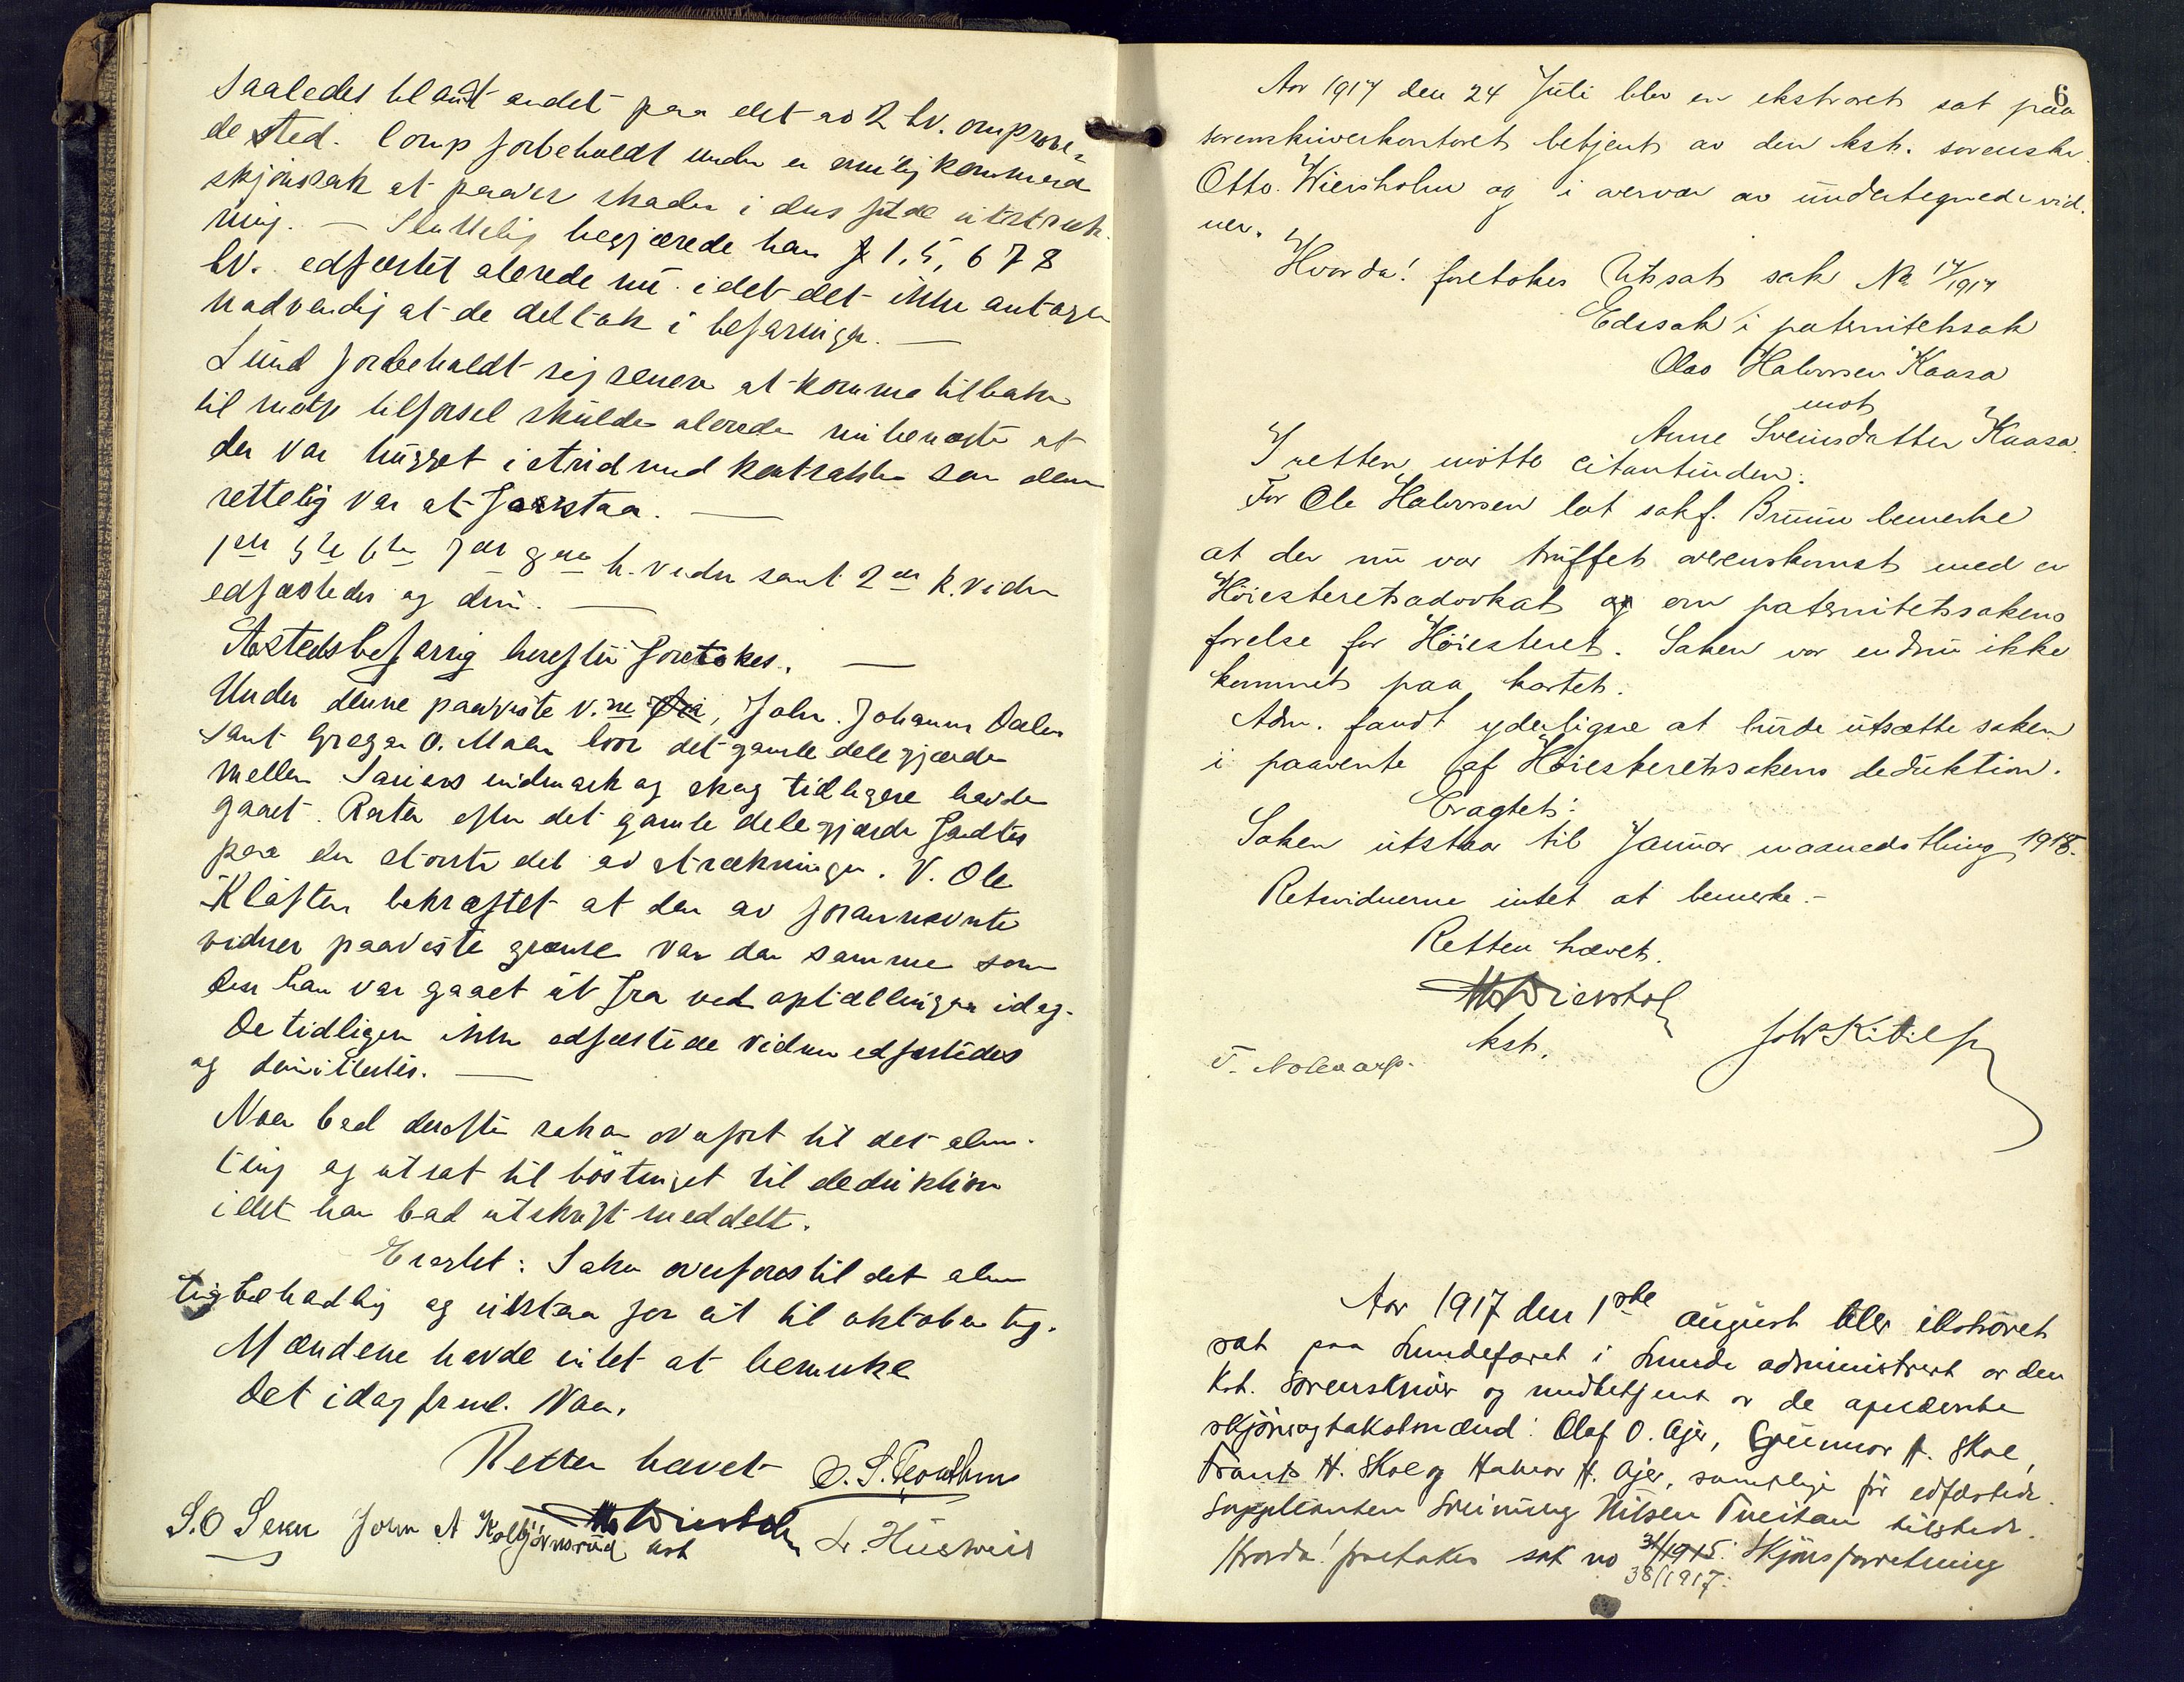 saaledes blandt andet paa det av 2 hv. omprove-
de sted. Comp forbeholdt under en mulig kommende
skjønssak at paavise skaden i dens fulde utstræk-
ning. — Sluttelig begjærede han 1, 5, 6 7 8
hv. edfæstet alerede nu idet det ikke antages
nødvendig at de deltok i befaringen. —
Lund forbeholdt sig senere at komme tilbake
til motp tilførsel skulde alerede nu benegte at
der var hugget i strid med kontrakten som den
rettelig var at forstaa. —
1ste 5te 6te 7de 8de h. vidn samt 2det k. vidn
edfæstedes og dim. —
Aastedsbefaring herefter foretokes. —
Under denne paaviste v.ne , John. Johannes Dalen
samt Gregar O. Moen hvor det gamle delegjærde
mellem indmark og skog tidligere havde
gaaet. Rester efter det gamle delegjærde fandtes
paa den største del av strækningen. V. Ole
Kläften bekræftet at den av forannevnte
vidner paaviste grænse var den samme som
den han var gaaet ut fra ved optællingen idag.
De tidligere ikke edfæstede vidner edfæstedes
og dimitertes. —
Noer bad derefter saken overført til det alm.
ting og utsat til høsttinget til deduktion
idet han bad utskrift meddelt.
Eragtet: Saken overføres til det alm
tingbehandling og utstaar for at til oktober ting.
Mændene havde intet at bemerke
Det idag freml. Noer.
Retten hævet
S.O John A Kolbjørnsrud kst
6
Aar 1917 den 24 Juli blev en ekstraret sat paa
sorenskriverkontoret betjent av den kst. sorenskr.
Otto Wiersholm og i overvær av undertegnede vid-
ner.
Hvorda! foretokes Utsat sak No 17/1917
Edssak i paternitetssak
Olav Halvorsen Kaasa
mot
Anne Sveinsdatter Kaasa.
I retten møtte citantinden.
For Ole Halvorsen lot sakf. Bruun bemerke
at der nu var truffet overenskomst med en
Höiesteretsadvokat om paternitetssakens
førelse for Höiesteret. Saken var endnu ikke
kommet paa kartet.
Adm. fandt yderligere at burde utsætte saken
i paavente af Höiesteretssakens deduktion.
Eragtet:
Saken utstaar til Januar maanedsthing 1918.
Retsvidnerne intet at bemerke.-
Retten hævet.
Wiersholm
kst.
Aar 1917 den 1ste august blev ekstraret
sat paa Lundefaret i Lunde administrert av den
Kst. Sorenskriver og medbetjent av de opnævnte
skjønsogtakstmænd: Olaf O. Ajer, Gunnar H. Skoe,
Frants H. Skoe og Halvor H. Ajer, samtlige før edfæstede.
Supplianten Sveinung Nilsen Tveitan tilstede.
Hvorda! foretokes sak no 31/1915. Skjønsforretning
38/1917.